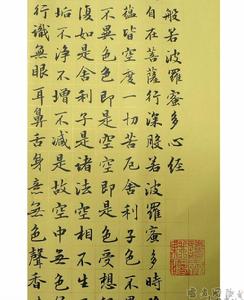 般若波羅蜜多心經
自在菩薩行深般若波羅蜜多時
蘊皆空度一切苦厄舍利子色不異
不異色色即是空空即是色受想
復如是舍利子是諸法空相不生不
垢不淨不增不減是故空中無色
行識無眼耳鼻舌身意無色聲香